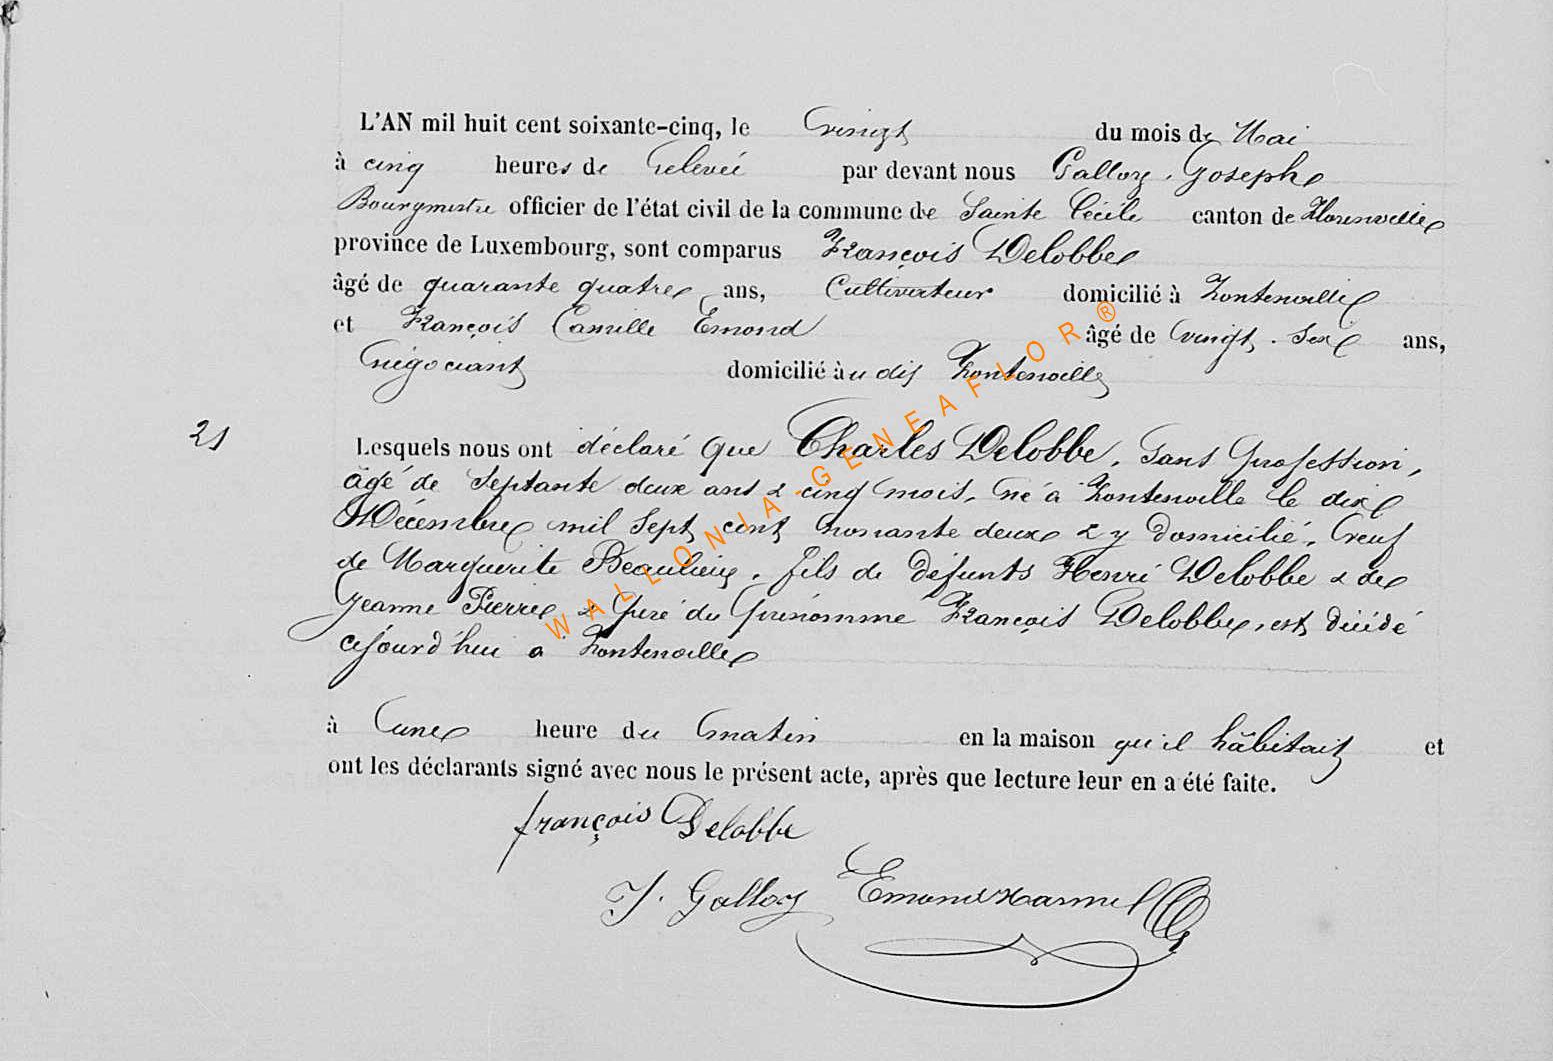 L'AN mil huit cent soixante-cinq, le vingt du mois de Mai
à cinq heures de relevée par devant nous Galloy Joseph
Bourgmestre officier de l'état civil de la commune de Sainte Cécile canton de Florenville
province de Luxembourg, sont comparus François Delobbe
âgé de quarante quatre ans, Cultivateur domicilié à Fontenoille
et François Camille Emond âgé de vingt-six ans,
négociant domicilié au dit Fontenoille
21
Lesquels nous ont déclaré que Charles Delobbe, sans profession,
âgé de septante deux ans & cinq mois, né à Fontenoille le dix
Décembre mil sept cent nonante deux & y domicilié, veuf
de Marguerite Beaulieu, fils de défunts Henri Delobbe & de
Jeanne Pierre & père du prénommé François Delobbe, est décédé
cejourd'hui a Fontenoille
à une heure du matin en la maison qu'il habitait et
ont les déclarants signé avec nous le présent acte, après que lecture leur en a été faite.
françois Delobbe
J. Galloy Emond Harmel
WALLONIA-GENEAFLOR®